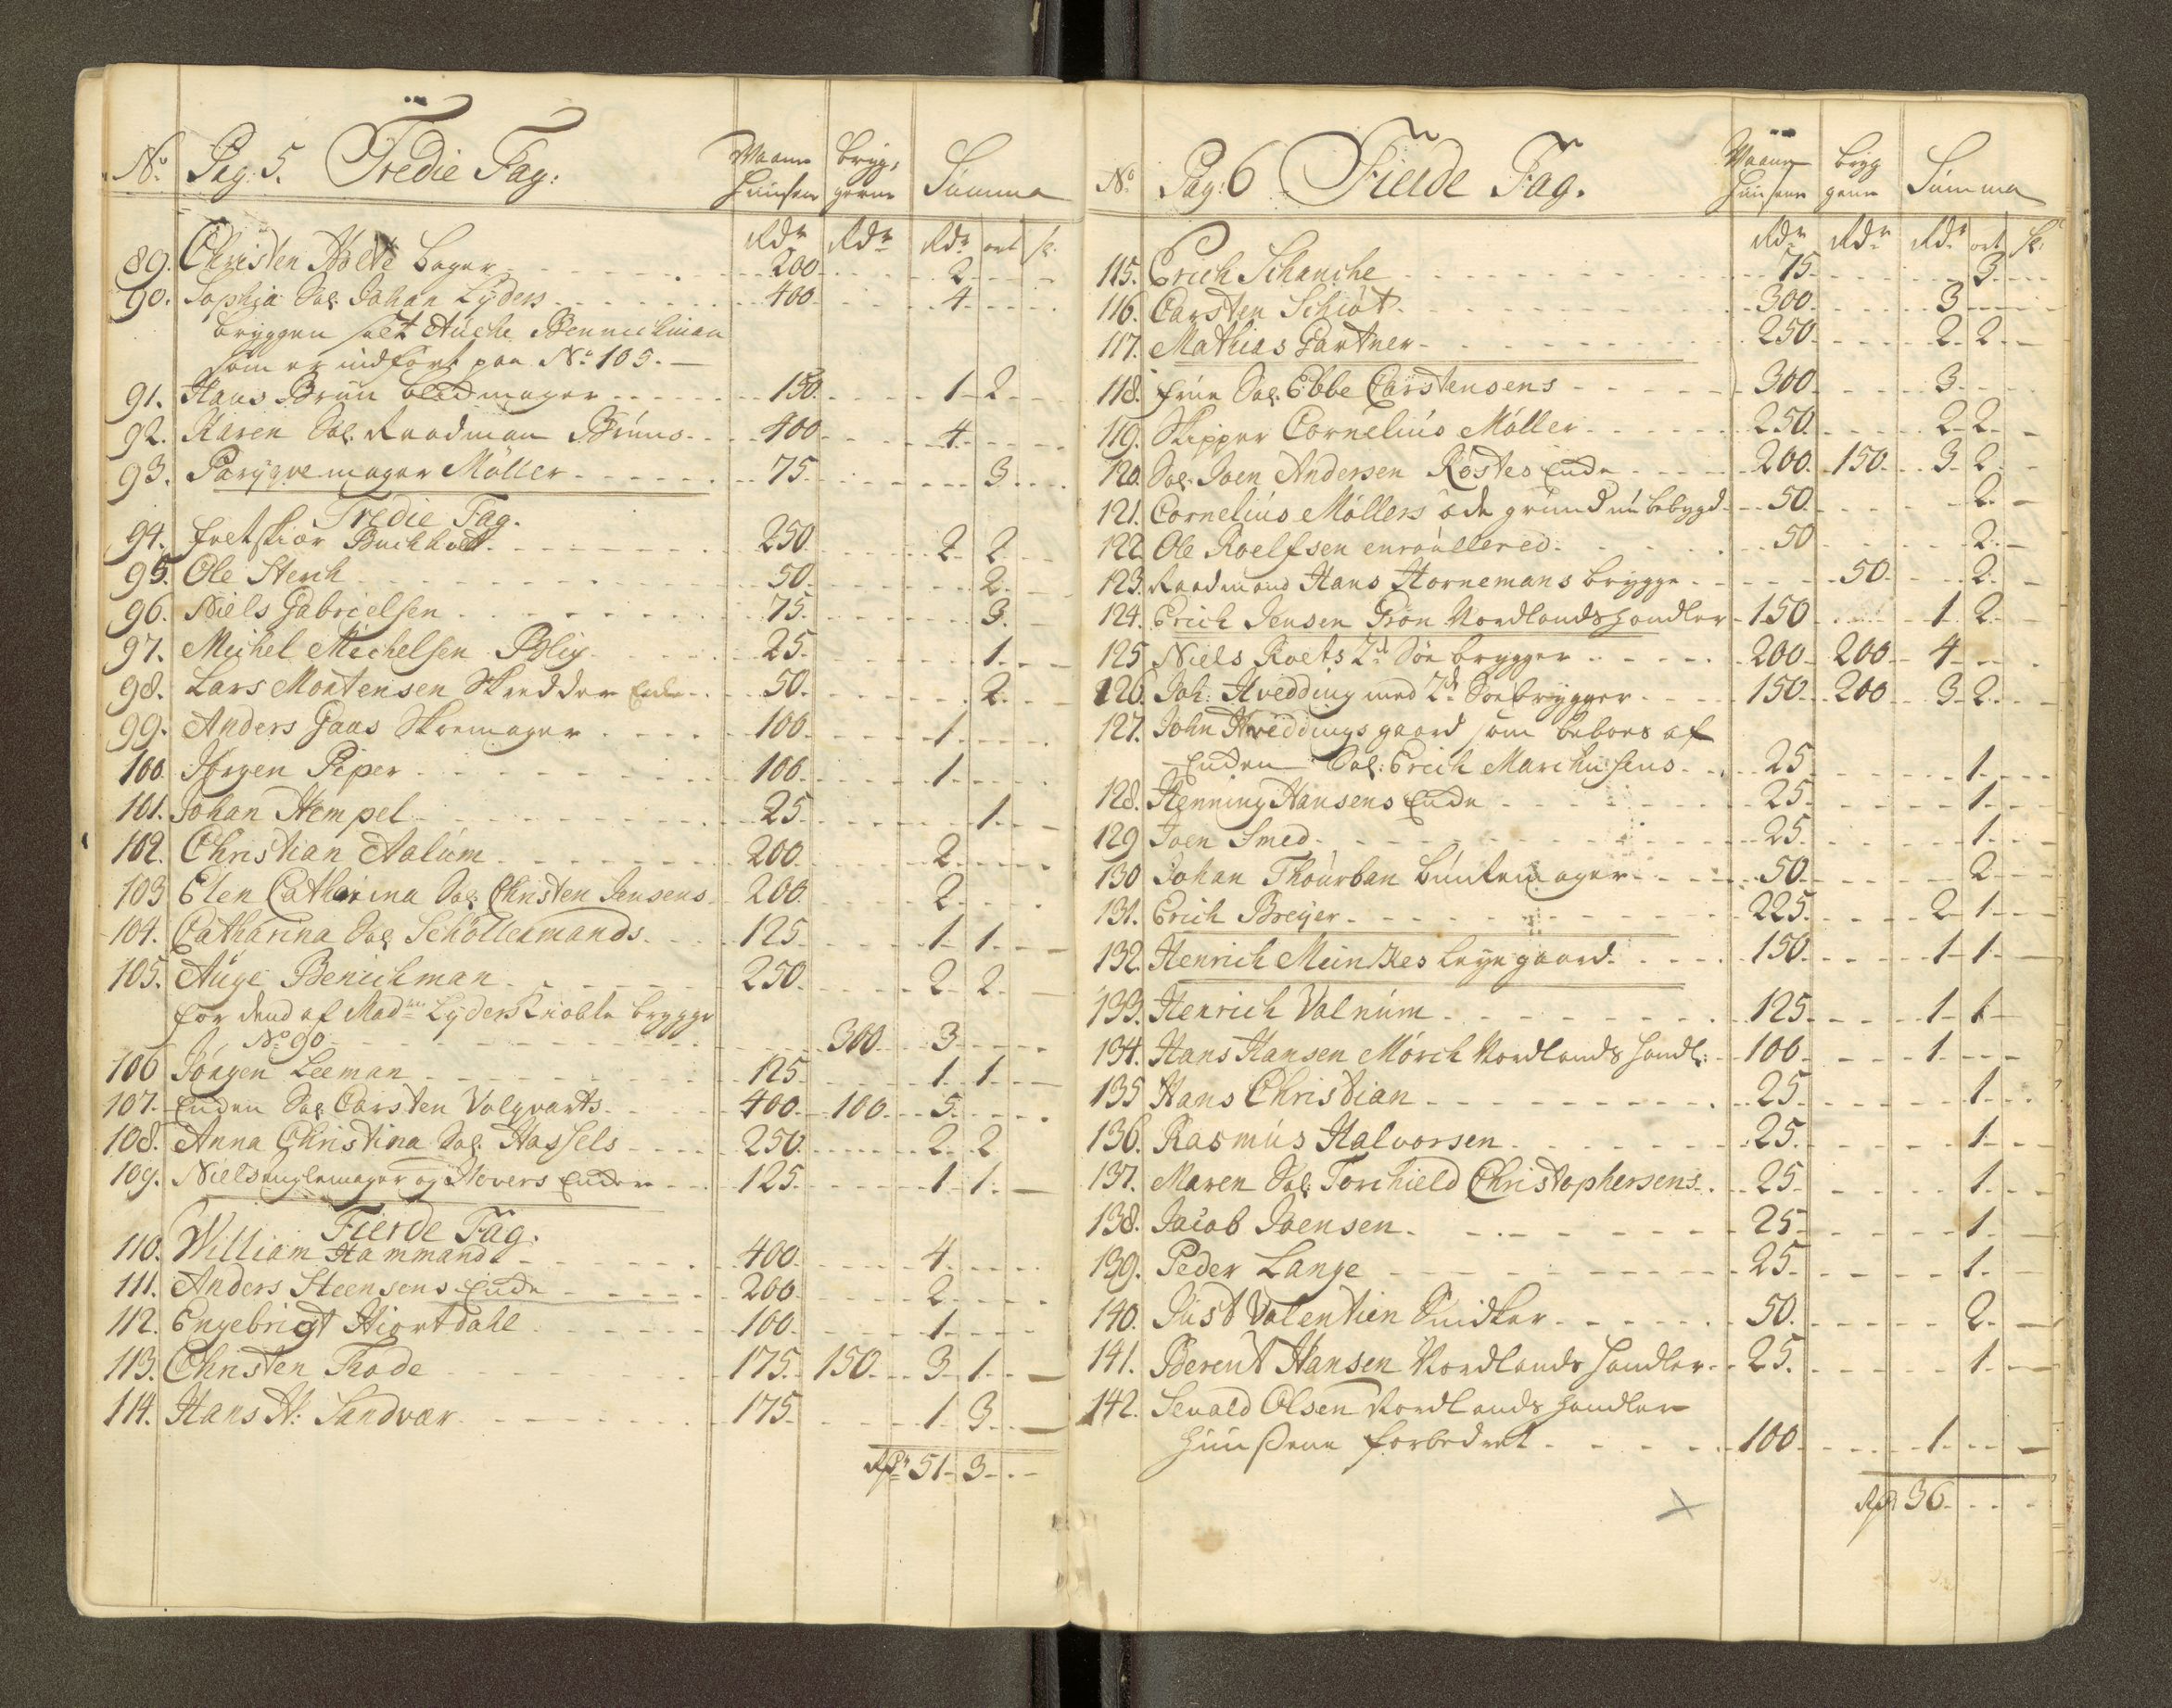 No. Pag: 5. Tredie Fag: Waane Huusene Bryg, gerne Summa
Rdr Rdr Rdr ort s.
89. Christen Holte bager 200 2
90. Sophia Sal. Johan Lyders 400 4
bryggen solt Auche Bennichman
som er indført paa No. 105.
91. Hans Bruun bødmager 150. 1 2
92. Karen Sal. Raadman Bruns 400 4
93. Paryqvemager Möller 75. 3
Tredie Fag.
94. Buchholt 250 2 2
95. Ole Sterch 50. 2
96. Niels Gabrielsen 75. 3.
97. Michel Michelsen Bliy 25. 1.
98. Lars Mortensen Skredder Enke 50. 2
99. Anders Gaas Skoemager 100. 1
100. Jørgen Piper 100. 1
101. Johan Hempel 25. 1.
102. Christian Aalum 200. 2
103 Elen Catharina Sal. Christen Jensens 200. 2
104. Catharina Sal. Schöllermands 125 1 1
105. Auge Benichman 250. 2 2
for dend af Madme Lyders Kiøbte brygge
No. 90 300 3
106 Jörgen Leeman 125 1 1
107. Enken Sal. Carsten Volqvarts 400 100 5
108. Anna Christina Sal. Hassels 250 2 2
109. Niels og Hovers Enker 125 1 1
Fierde Fag.
110. William Hammand 400 4
111. Anders Steensens Enke 200 2
112. Engebrigt Hiortdahl 100 1
113. Christen Thode 175 150 3 1
114. Hans N: Sandvær 175 1 3
Rdr 51 3
No. Pag: 6 Fierde Fag. Waane Huusene Bryg gerne Summa
Rdr Rdr Rdr ort s.
115. Erich Schanche 75 3
116. Carsten Schiöt 300 3
117. Mathias Gartner 250 2 2
118. Frue Sal. Ebbe Carstensens 300 3
119. Skipper Cornelius Möller 250. 2 2
120. Sal. Joen Andersen Röstes Enke 200 150 3 2
121. Cornelius Möllers øde grund nu bebygd 50 2
122 Ole Roelfsen enroullered 50 2
123. Raadmand Hans Hornemans brygge 50 2
124. Erich Jensen Grøn Nordlandshandler 150 1 2
125 Niels Roets 2de Söe brygger 200 200 4
126. Joh: Hvedding med 2de Söebrygger 150 200 3 2
127. John Hveddings gaard som beboes af
Enken Sal: Erich Marchusens 25 1
128. Henning Hansens Enke 25 1
129 Joen Smed 25. 1
130 Johan Thourban buntemager 50. 2
131. Erich Breyer 225. 2 1
132. Henrich Meinkes leye gaard 150 1 1
133. Henrich Valnum 125 1 1
134. Hans Hansen Mörch Nordlandshandl: 100 1
135 Hans Christian 25 1
136. Rasmus Halvorsen 25. 1
137. Maren Sal. Torchield Christophersens 25 1
138. Jacob Joensen 25 1
139. Peder Lange 25 1.
140. Just Valentien Snidker 50. 2
141. Berent Hansen Nordlands handler 25. 1
142. Sevald Olsen Nordlands handler
Huusene forbedret 100 1
Rdr 36